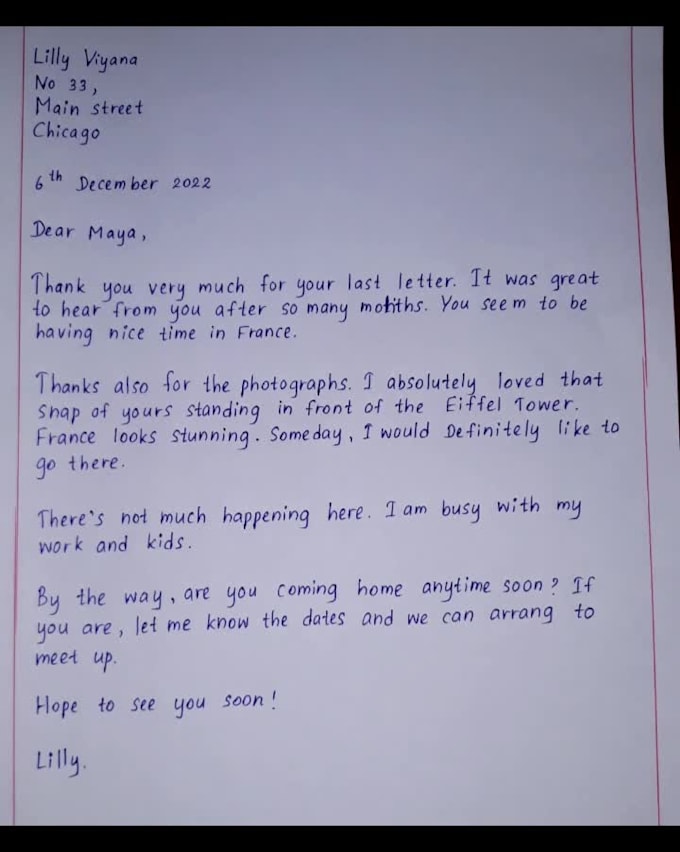 Lilly Viyana
No 33,
Main street
Chicago
6th December 2022
Dear Maya,
Thank you very much for your last letter. It was great
to hear from you after so many months. You seem to be
having nice time in France.
Thanks also for the photographs. I absolutely loved that
snap of yours standing in front of the Eiffel Tower.
France looks stunning. Someday, I would Definitely like to
go there.
There's not much happening here. I am busy with my
work and kids.
By the way, are you coming home anytime soon? If
you are, let me know the dates and we can arrang to
meet up.
Hope to see you soon!
Lilly.